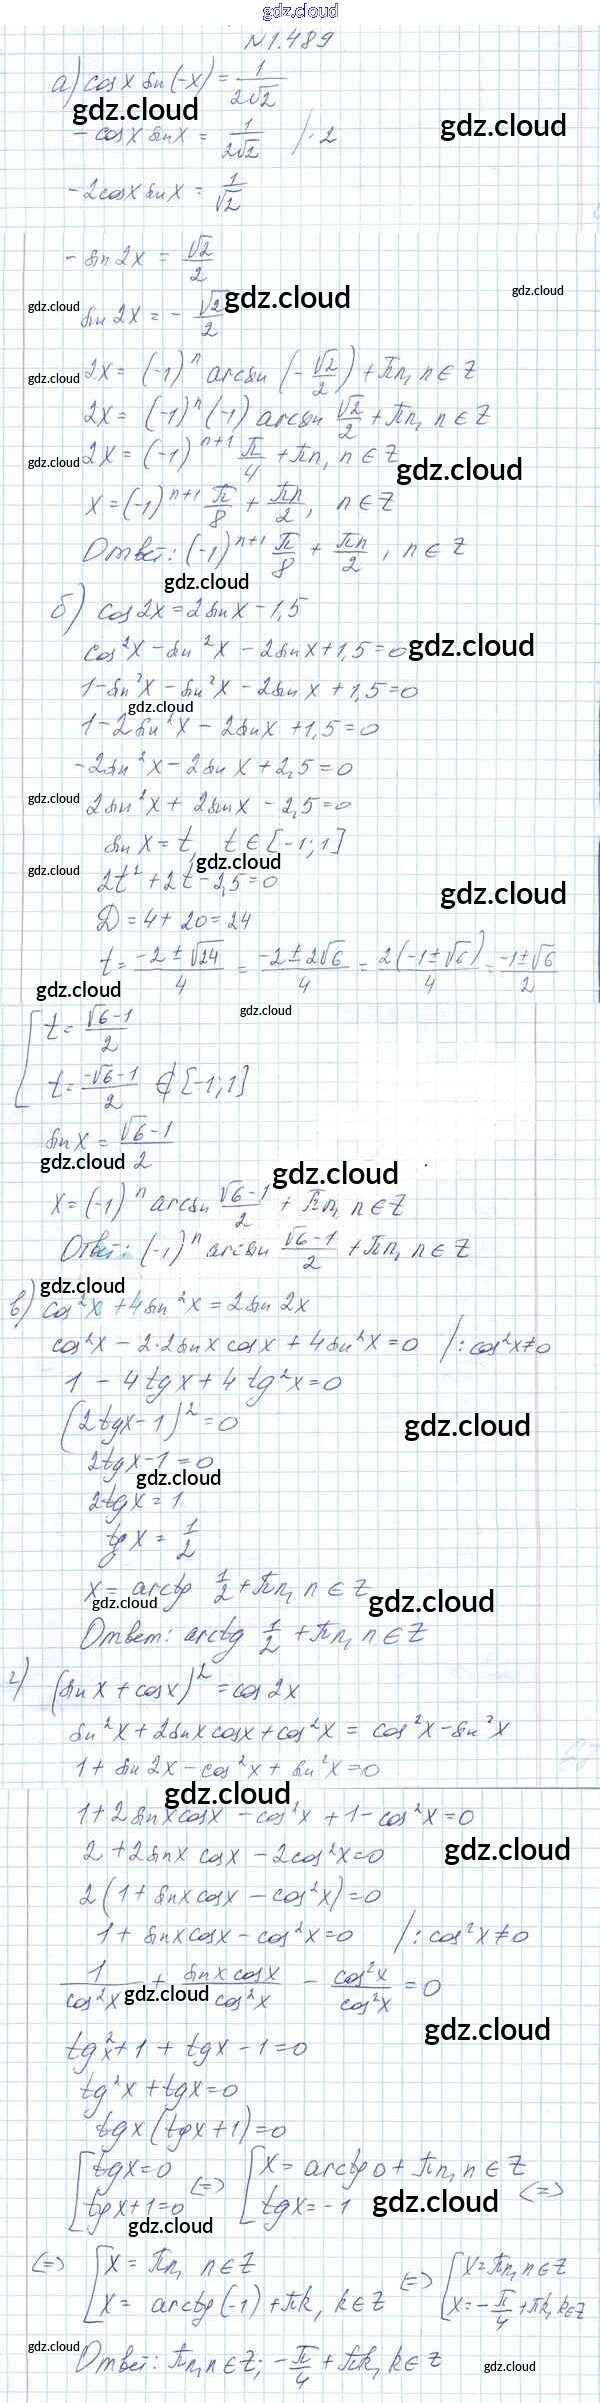 gdz.cloud
№1.489
а) cos x sin(-x) = 1/(2√2)
gdz.cloud
-cos x sin x = 1/(2√2) /·2
gdz.cloud
-2cos x sin x = 1/√2
-sin 2x = √2/2
gdz.cloud
gdz.cloud
gdz.cloud
sin 2x = -√2/2
gdz.cloud
2x = (-1)^n arcsin(-√2/2) + πn, n∈Z
2x = (-1)^n (-1) arcsin √2/2 + πn, n∈Z
gdz.cloud
2x = (-1)^(n+1) π/4 + πn, n∈Z
gdz.cloud
x = (-1)^(n+1) π/8 + πn/2, n∈Z
Ответ: (-1)^(n+1) π/8 + πn/2, n∈Z
gdz.cloud
б) cos 2x = 2sin x - 1,5
cos²x - sin²x - 2sin x + 1,5 = 0
gdz.cloud
1 - sin²x - sin²x - 2sin x + 1,5 = 0
gdz.cloud
1 - 2sin²x - 2sin x + 1,5 = 0
-2sin²x - 2sin x + 2,5 = 0
gdz.cloud
2sin²x + 2sin x - 2,5 = 0
sin x = t, t∈[-1;1]
gdz.cloud
gdz.cloud
2t² + 2t - 2,5 = 0
gdz.cloud
D = 4 + 20 = 24
t = (-2 ± √24)/4 = (-2 ± 2√6)/4 = 2(-1 ± √6)/4 = (-1 ± √6)/2
gdz.cloud
gdz.cloud
[ t = (√6-1)/2
t = (-√6-1)/2 ∉ [-1;1]
sin x = (√6-1)/2
gdz.cloud
gdz.cloud
x = (-1)^n arcsin (√6-1)/2 + πn, n∈Z
Ответ: (-1)^n arcsin (√6-1)/2 + πn, n∈Z
gdz.cloud
в) cos²x + 4sin²x = 2sin 2x
cos²x - 2·2sin x cos x + 4sin²x = 0 /:cos²x≠0
1 - 4tg x + 4tg²x = 0
(2tg x - 1)² = 0
gdz.cloud
2tg x - 1 = 0
gdz.cloud
2tg x = 1
tg x = 1/2
x = arctg 1/2 + πn, n∈Z
gdz.cloud
gdz.cloud
Ответ: arctg 1/2 + πn, n∈Z
г) (sin x + cos x)² = cos 2x
sin²x + 2sin x cos x + cos²x = cos²x - sin²x
1 + sin 2x - cos²x + sin²x = 0
gdz.cloud
1 + 2sin x cos x - cos²x + 1 - cos²x = 0
gdz.cloud
2 + 2sin x cos x - 2cos²x = 0
2(1 + sin x cos x - cos²x) = 0
1 + sin x cos x - cos²x = 0 /:cos²x≠0
1/cos²x + sin x cos x/cos²x - cos²x/cos²x = 0
gdz.cloud
gdz.cloud
tg²x + 1 + tg x - 1 = 0
tg²x + tg x = 0
tg x (tg x + 1) = 0
[ tg x = 0 <=> [ x = arctg 0 + πn, n∈Z
tg x + 1 = 0 tg x = -1 <=>
gdz.cloud
gdz.cloud
<=> [ x = πn, n∈Z <=> [ x = πn, n∈Z
x = arctg(-1) + πk, k∈Z x = -π/4 + πk, k∈Z
gdz.cloud
Ответ: πn, n∈Z; -π/4 + πk, k∈Z
gdz.cloud